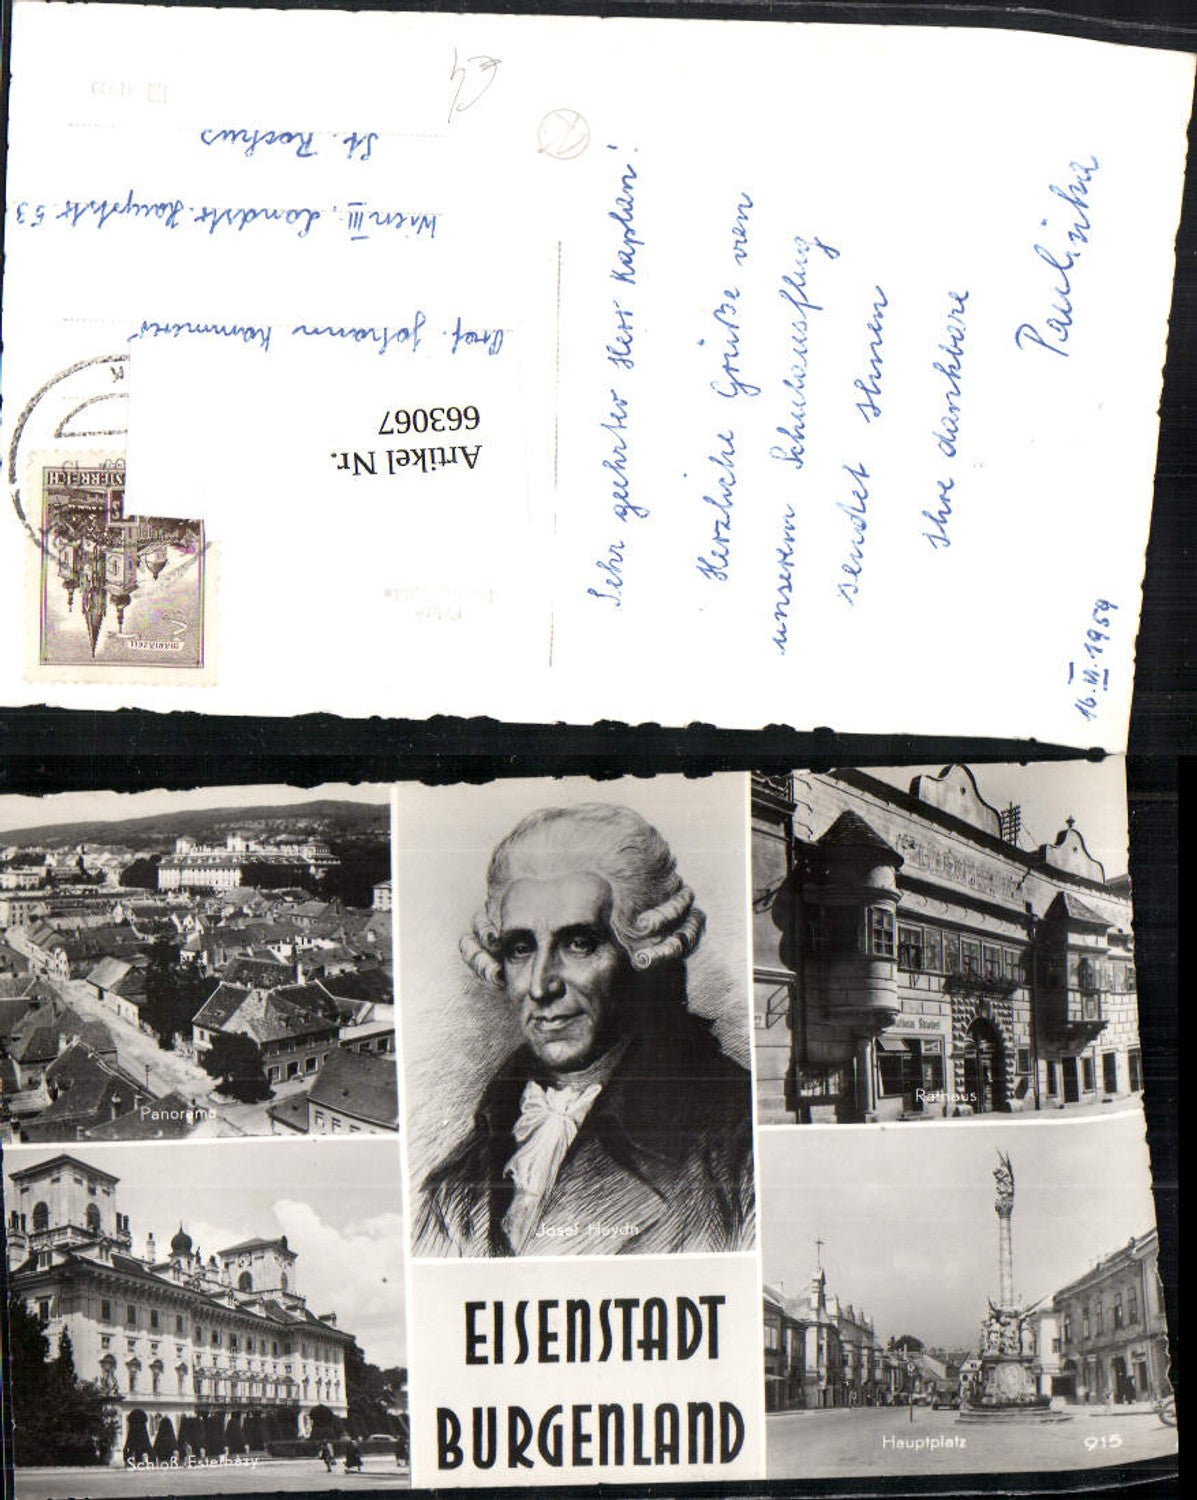 Sehr geehrter Herr Kaplan!
Herzliche Grüße von
unserem Schulausflug
sendet Ihnen
Ihre dankbare
16. VI. 1959
Prof. Johann
Wien III, Landstr. Hauptstr. 53
St. Rochus
Artikel Nr.
663067
MARIAZELL
Panorama
Josef Haydn
Rathaus
Schloß Esterhazy
EISENSTADT
BURGENLAND
Hauptplatz
915